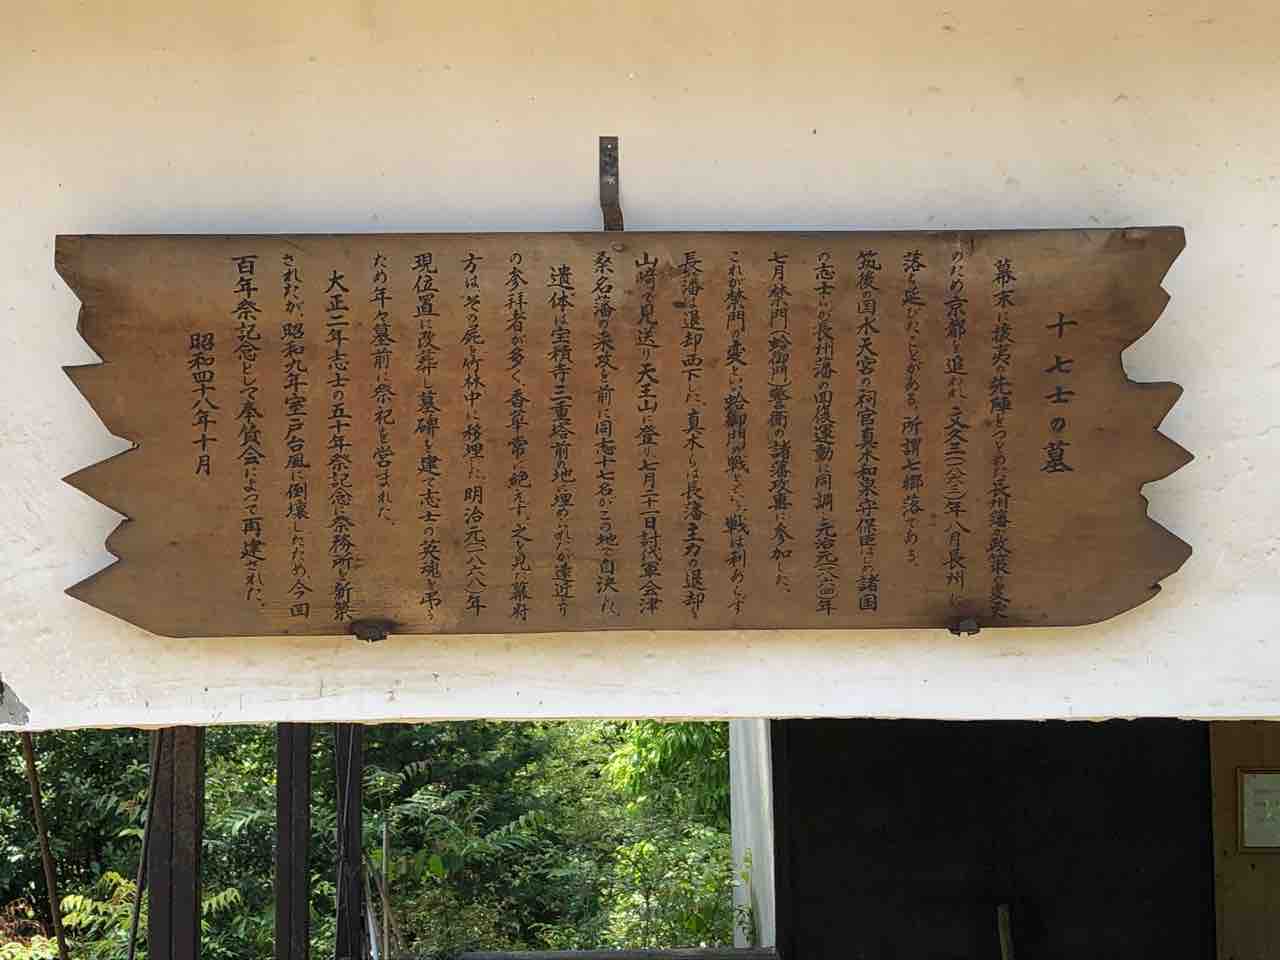 十七士の墓
幕末に攘夷の先陣をつとめた長州藩が政策の変更
のため京都を追われ、文久三(一八六三)年八月長州に
落ち延びたことがある。所謂七郷落である。
筑後の国水天宮の祠官真木和泉守保臣はじめ諸国
の志士が長州藩の回復運動に同調し元治元(一八六四)年
七月禁門(蛤御門)警衛の諸藩攻撃に参加した。
これが禁門の変といい蛤御門の戦という。戦は利あらず
長藩は退却西下した。真木らは長藩主力の退却を
山崎で見送り天王山に登り七月二十一日討伐軍会津
桑名藩の来攻を前に同志十七名がこの地で自決した。
遺体は宝積寺三重塔前の地に埋められたが遠近より
の参拝者が多く、香華常に絶えず、之を見た幕府
方はその屍を竹林中に移埋した。明治元(一八六八)年
現位置に改葬し墓碑を建て志士の英魂を弔う
ため年々墓前に祭祀を営まれた。
大正二年志士の五十年祭記念に祭務所を新築
されたが、昭和九年室戸台風に倒壊したため、今回
百年祭記念として奉賛会によって再建された。
昭和四十八年十月